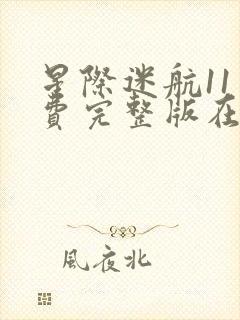 星際迷航11
費完整版在
風夜北